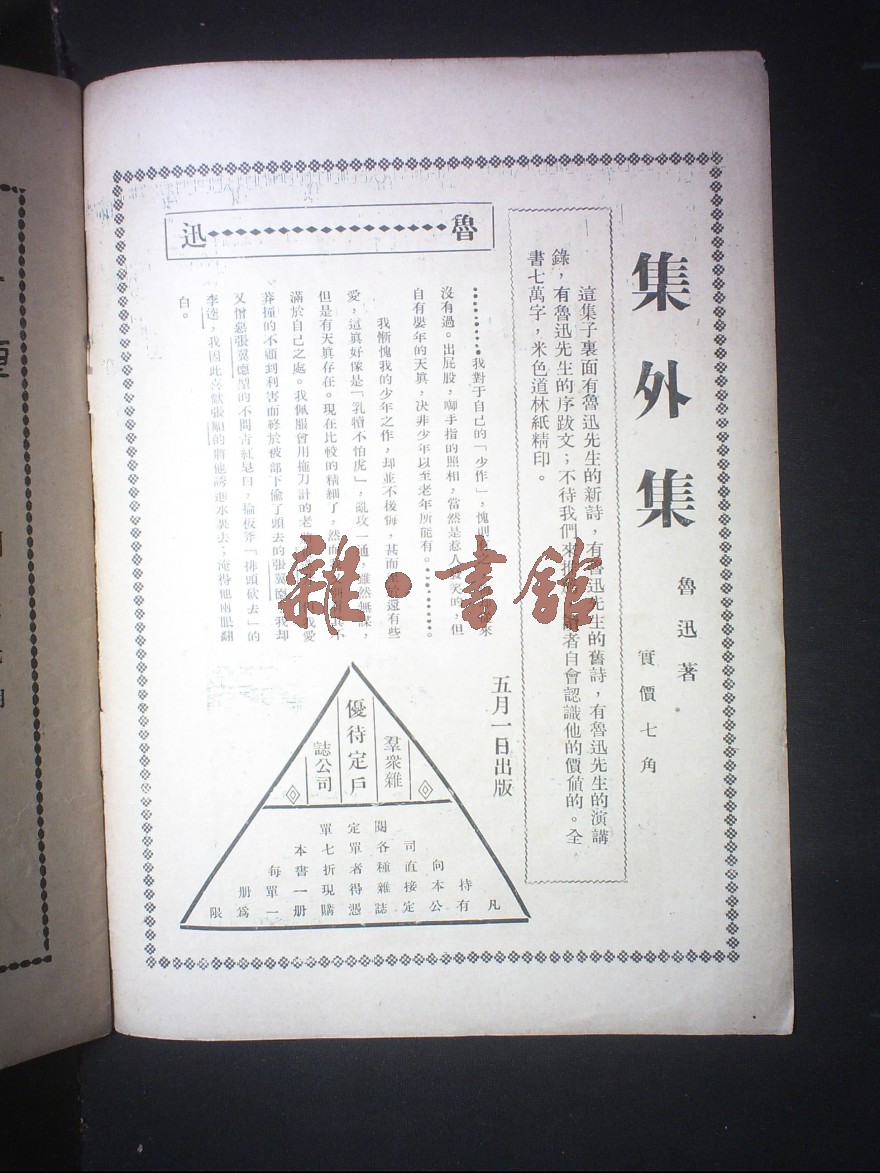 集外集
魯迅著
實價七角
這集子裏面有魯迅先生的新詩，有魯迅先生的舊詩，有魯迅先生的演講
錄，有魯迅先生的序跋文；不待我們來 者自會認識他的價值的。全
書七萬字，米色道林紙精印。
魯迅
我對于自己的「少作」，愧則 來
沒有過。出屁股，啣手指的照相，當然是惹人發笑的，但
自有嬰年的天眞，決非少年以至老年所能有。
我慚愧我的少年之作，却並不後悔，甚而至於還有些
愛，這眞好像是「乳犢不怕虎」，亂攻一通，雖然無謀，
但是有天眞存在。現在比較的精細了，然而 不
滿於自己之處。我佩服會用拖刀計的老 我愛
莽撞的不顧到利害而終於被部下偷了頭去的張翼德；我却
又憎惡張翼德型的不問青紅皂白，掄板斧「排頭砍去」的
李逵，我因此喜歡張順的將他誘進水裏去；淹得他兩眼翻
白。
五月一日出版
羣衆雜
優待定戶
誌公司
凡
持有
向本公
司直接定
閱各種雜誌
定單者得憑
單七折現購
本書一册
每單一
册爲
限
雜·書舘